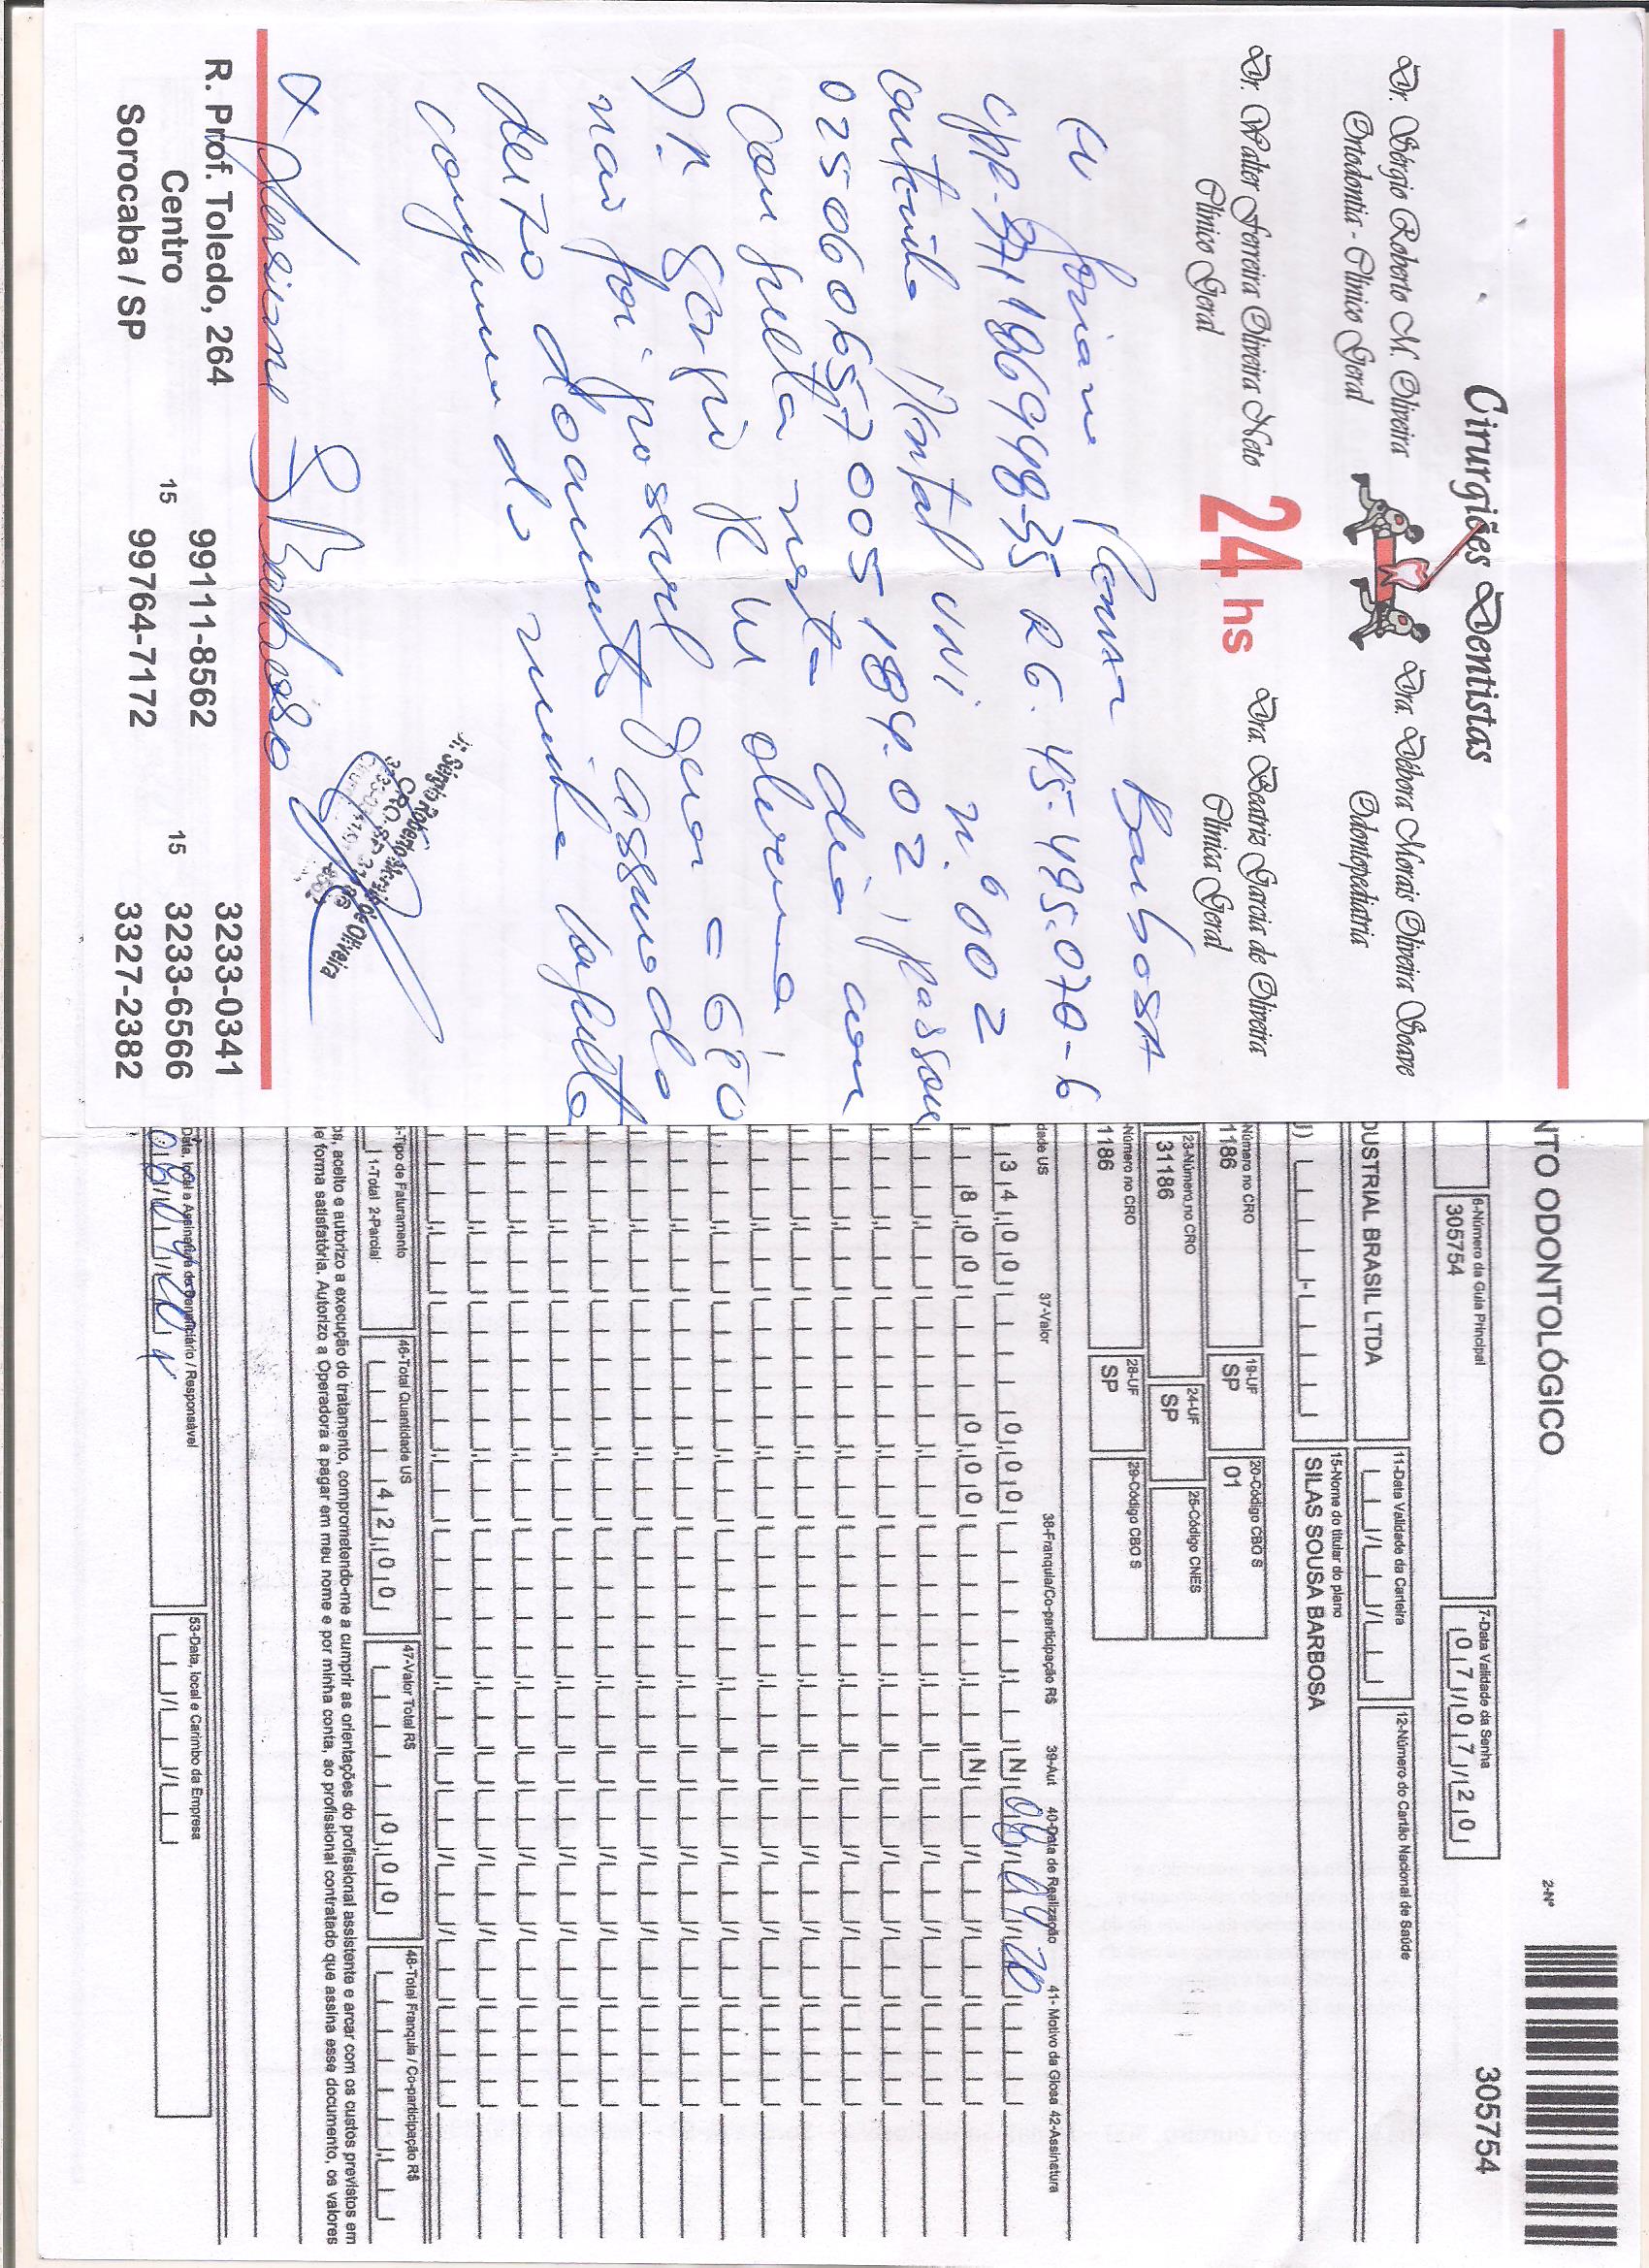 Cirurgiões Dentistas
Dr. Sérgio Roberto M. Oliveira
Ortodontia - Clínico Geral
Dra. Débora Morais Oliveira Soave
Odontopediatria
Dr. Walter Ferreira Oliveira Neto
Clínico Geral
24 hs
Dra. Beatriz Garcia de Oliveira
Clínica Geral
Eu Josiane Barbosa
RG. 45.495.070-6
carteirinha Dental Uni n.º 002
025060657005184.02, passou
consulta nesta dia com
Dr. Sergio R M Oliveira
não foi possivel assinado
deito documento minha consulta
confirmado
Dr. Sérgio Roberto de Oliveira
R. Prof. Toledo, 264
Centro
Sorocaba / SP
15 99111-8562
99764-7172
15 3233-0341
3233-6566
3327-2382
NTO ODONTOLÓGICO
2-Nº
305754
6-Número da Guia Principal
305754
7-Data Validade da Senha
07/07/20
DUSTRIAL BRASIL LTDA
11-Data Validade da Carteira
12-Número do Cartão Nacional de Saúde
15-Nome do titular do plano
SILAS SOUSA BARBOSA
Número no CRO
1186
19-UF
SP
20-Código CBO S
01
23-Número no CRO
31186
24-UF
SP
25-Código CNES
Número no CRO
1186
28-UF
SP
29-Código CBO S
dade US
37-Valor
38-Franquia/Co-participação R$
39-Aut
40-Data de Realização
41- Motivo da Glosa
42-Assinatura
34,00 0,00 N 08 04 20
8,00 0,00 N
-Tipo de Faturamento
1-Total 2-Parcial
46-Total Quantidade US
42,00
47-Valor Total R$
0,00
48-Total Franquia / Co-participação R$
os, aceito e autorizo a execução do tratamento, comprometendo-me a cumprir as orientações do profissional assistente e arcar com os custos previstos em
e forma satisfatória. Autorizo a Operadora a pagar em meu nome e por minha conta, ao profissional contratado que assina esse documento, os valores
Data, local e Assinatura do Beneficiário / Responsável
53-Data, local e Carimbo da Empresa